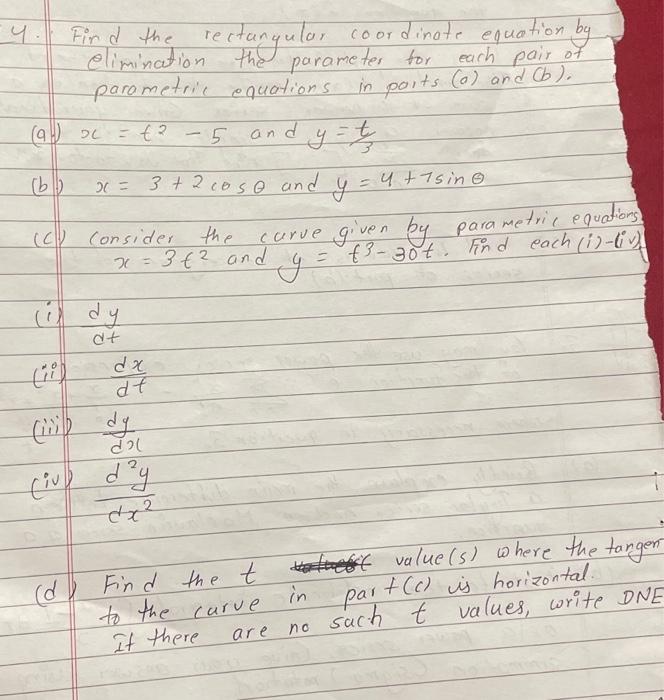 4. Find the rectangular coordinate equation by
elimination the parameter for each pair of
parametric equations in parts (a) and (b).
(a) x = t² - 5 and y = t/3
(b) x = 3 + 2 cosθ and y = 4 + 7 sinθ
(c) Consider the curve given by parametric equations
x = 3t² and y = t³ - 30t. Find each (i)-(iv)
(i) dy/dt
(ii) dx/dt
(iii) dy/dx
(iv) d²y/dx²
(d) Find the t value(s) where the tangen
to the curve in part (c) is horizontal.
If there are no such t values, write DNE